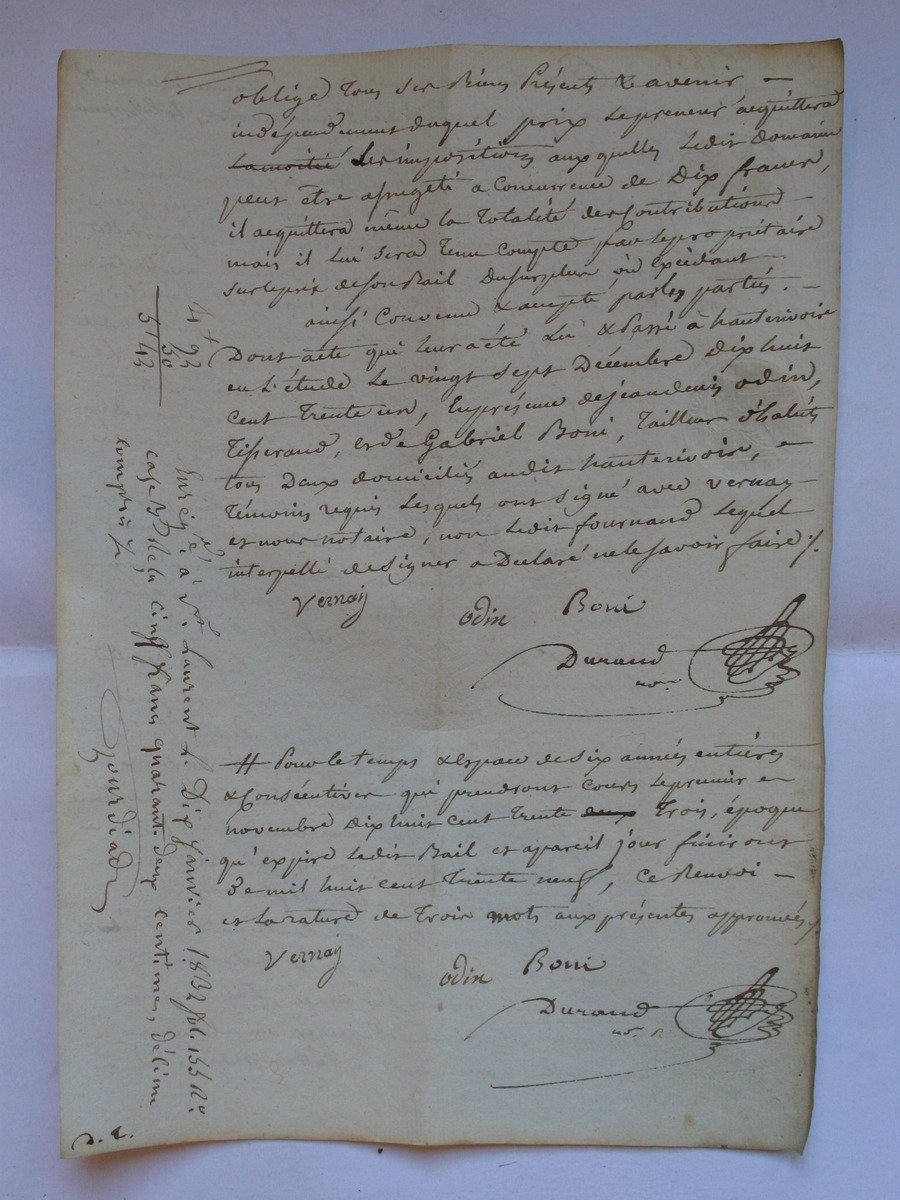 oblige tous ses Biens Présents & avenir —
indépendamment duquel prix le preneur acquittera
La moitié Les impositions aux quelles ledit domaine
peut être assugété a Concurrence de Dix francs,
il acquittera même la Totalité des Contributions —
mais il Lui sera Tenu Compte par le propriétaire
sur le prix de son Bail du surplus où Excédant
ainsi Convenu & accepté par les parties. —
Dont acte qui leur a été Lû & Passé à hauterivoire
en L'étude Le vingt sept Décembre dix huit
cent Trente un, En présence de jean denis odin,
Tisserand, et de Gabriel Boni, Tailleur d'habits
tous Deux domiciliés audit hauterivoire, —
Témoins requis Lesquels ont signé avec vernay —
et nous notaire, non Ledit fournand Lequel
interpellé de signer a Déclaré ne le savoir faire ./.
Vernay odin Boni
Durand
no.re
# Pour le temps & espace de six années entières
& Consécutives qui prendront Cours le premier —
novembre Dix huit cent Trente deux Trois, époque
qu'expire Ledit Bail et a pareil jour finiront
mil huit cent Trente neuf, Ce Renvoi —
et La rature de Trois mots aux présentes approuvés ./.
Vernay odin Boni
Durand
no.re
4 93
+ 50
5 43
Enreg.é à St Laurent L. Dix janvier 1832 fol. 155 R.o
case Reçu cinq francs quarante deux centimes, décime
compris